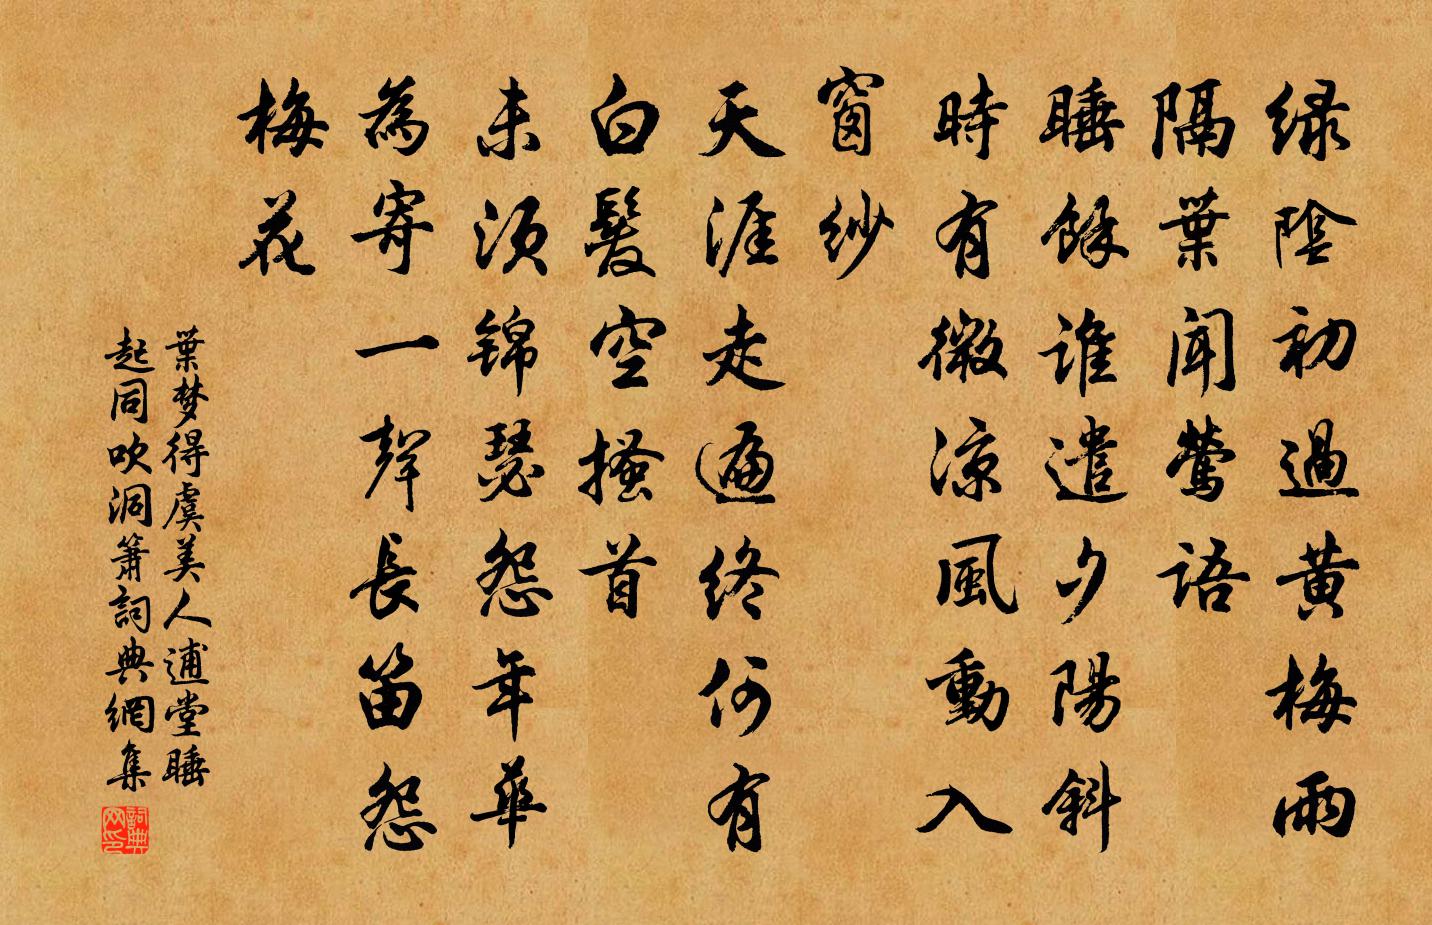 绿陰初過黄梅雨
隔葉闻鶯語
睡餘誰遣夕陽斜
時有微涼風動入
窗紗
天涯走遍終何有
白髮空搔首
未须锦瑟怨年華
為寄一聲長笛怨
梅花
葉梦得虞美人逋堂睡
起同吹洞箫詞典網集
詞典
网印